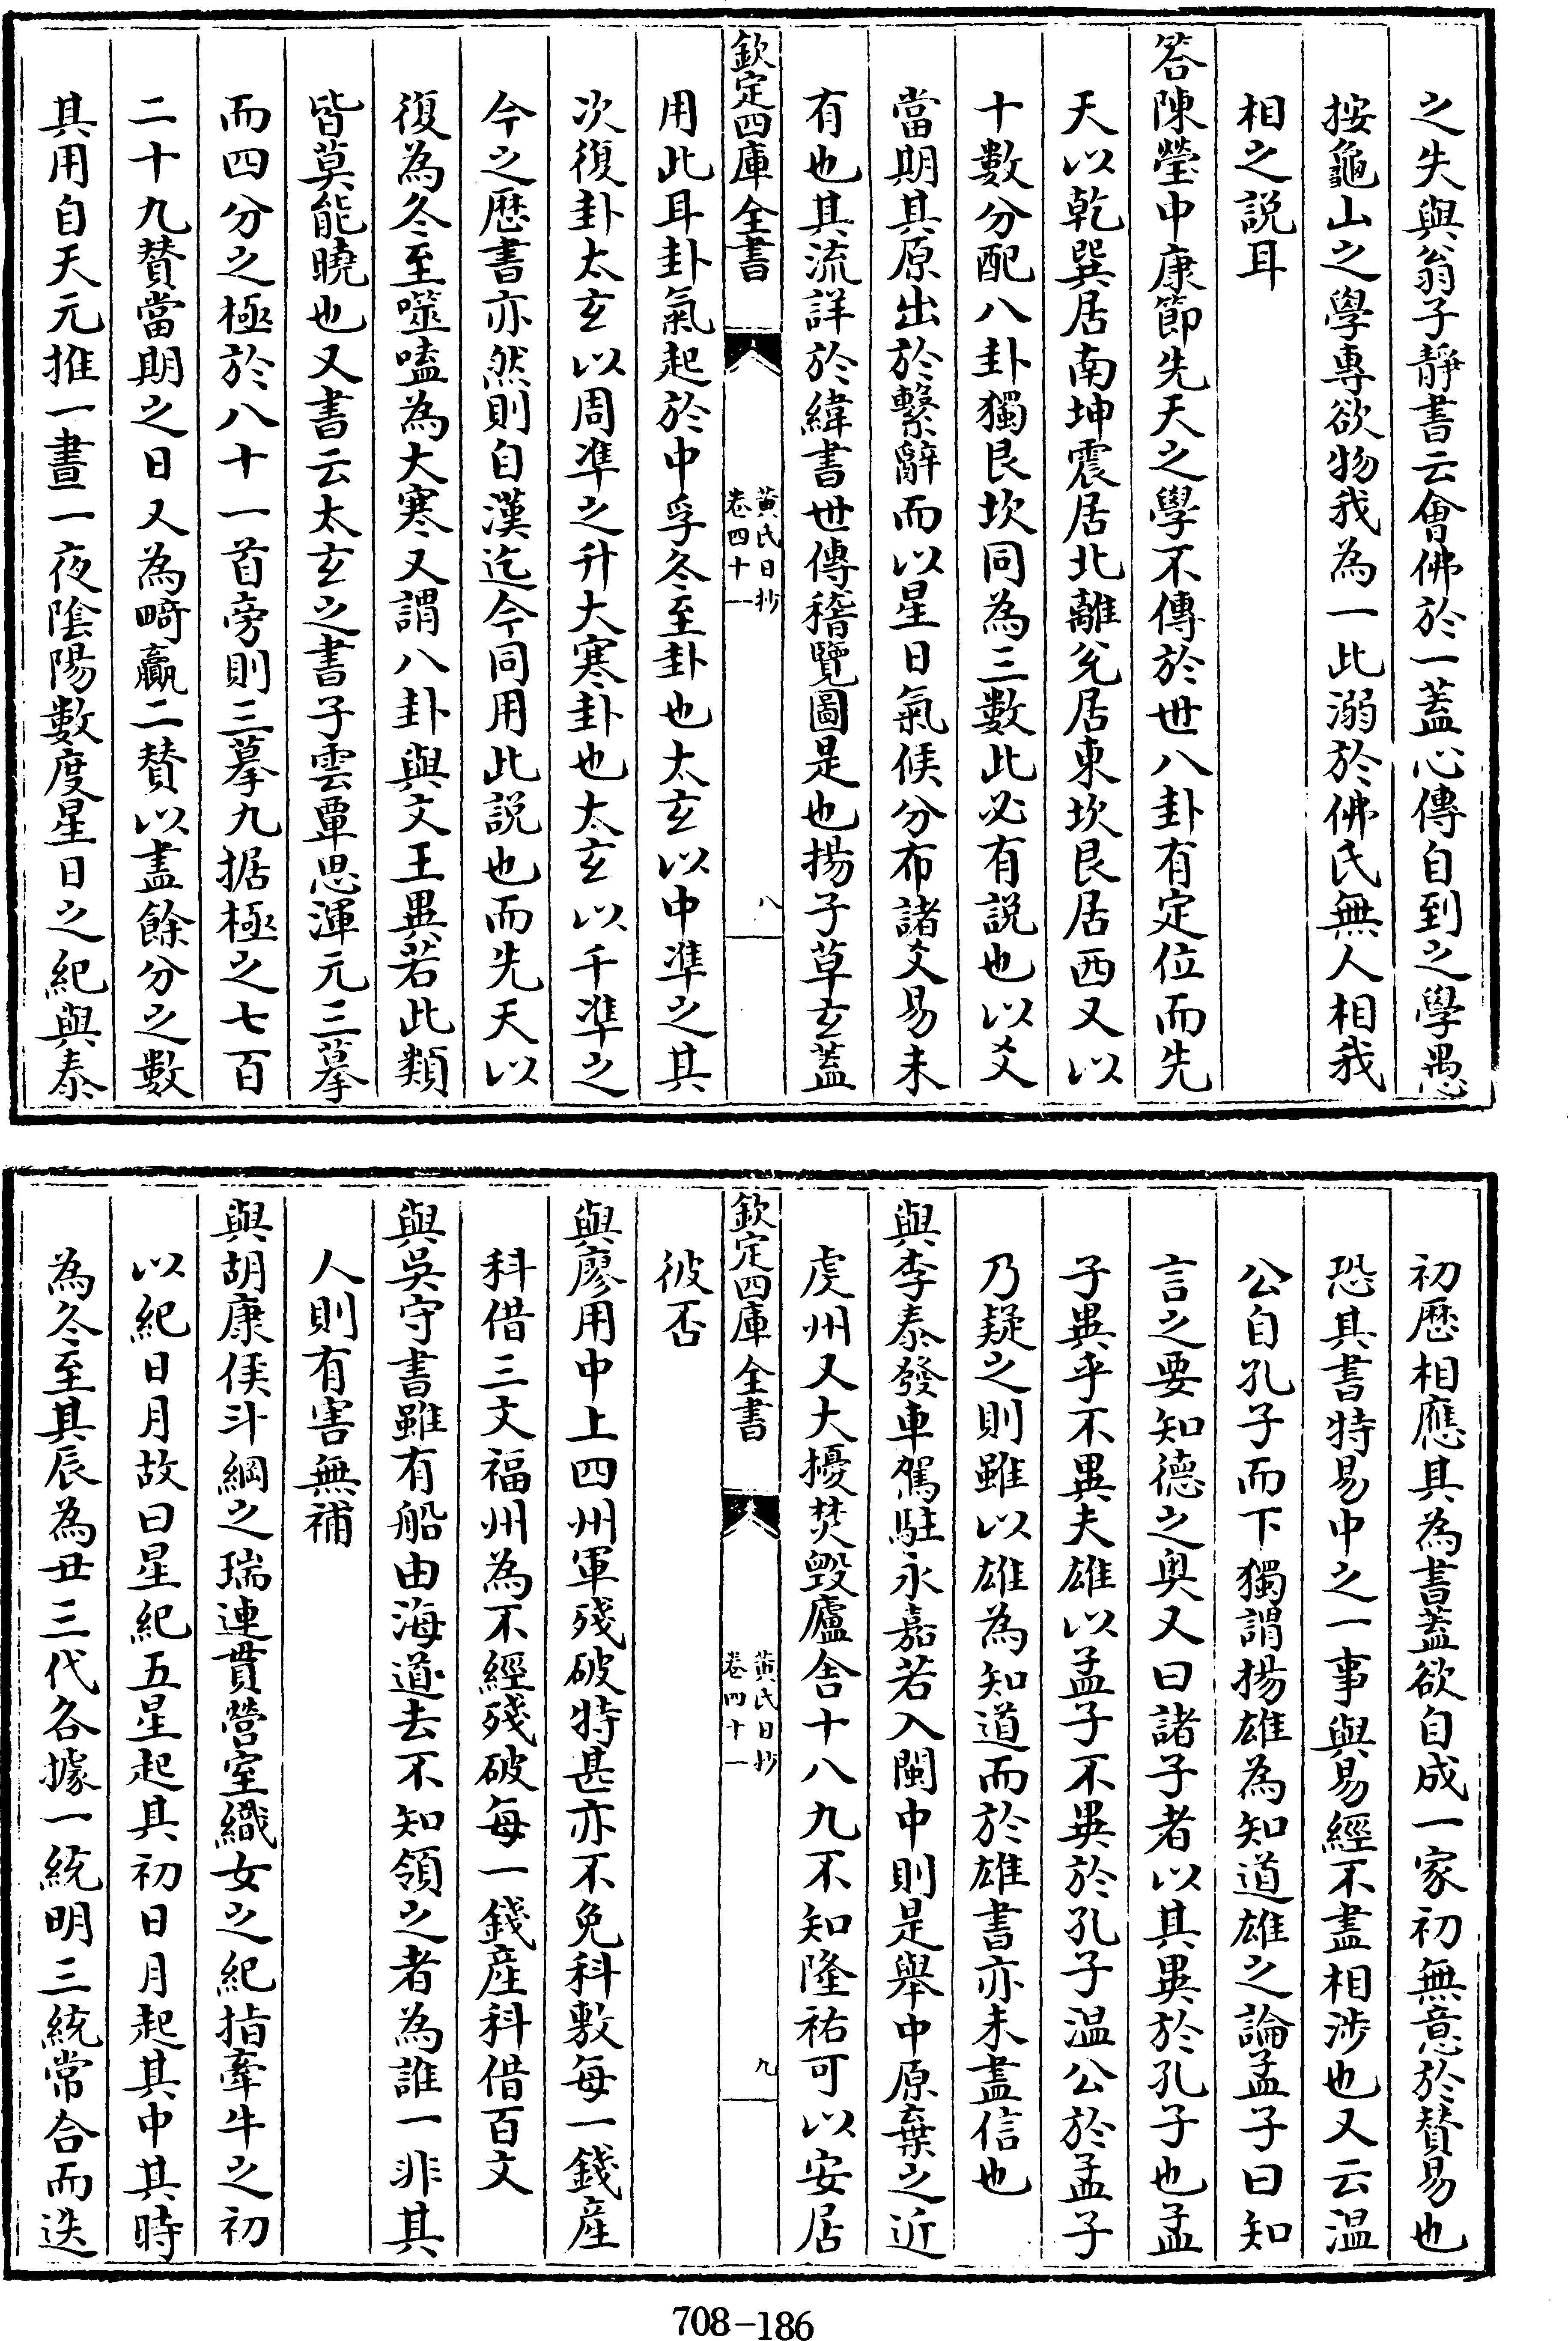 之失與翁子靜書云會佛於一蓋心傳自到之學愚
按龜山之學專欲物我為一此溺於佛氏無人相我
相之説耳
答陳瑩中康節先天之學不傳於世八卦有定位而先
天以乾巽居南坤震居北離兊居東坎艮居西又以
十數分配八卦獨艮坎同為三數此必有説也以爻
當期其原出於繫辭而以星日氣候分布諸爻易未
有也其流詳於緯書世傳稽覽圖是也揚子草玄蓋
欽定四庫全書
黄氏日抄
卷四十一
八
用此耳卦氣起於中孚冬至卦也太玄以中準之其
次復卦太玄以周準之升大寒卦也太玄以千準之
今之厯書亦然則自漢迄今同用此説也而先天以
復為冬至噬嗑為大寒又謂八卦與文王異若此類
皆莫能曉也又書云太玄之書子雲覃思渾元三摹
而四分之極於八十一首旁則三摹九据極之七百
二十九賛當期之日又為畸贏二賛以盡餘分之數
其用自天元推一晝一夜陰陽數度星日之紀與泰
初厯相應其為書蓋欲自成一家初無意於賛易也
恐其書特易中之一事與易經不盡相涉也又云温
公自孔子而下獨謂揚雄為知道雄之論孟子曰知
言之要知德之奥又曰諸子者以其異於孔子也孟
子異乎不異夫雄以孟子不異於孔子温公於孟子
乃疑之則雖以雄為知道而於雄書亦未盡信也
與李泰發車駕駐永嘉若入閩中則是舉中原棄之近
虔州又大擾焚毁廬舍十八九不知隆祐可以安居
欽定四庫全書
黄氏日抄
卷四十一
九
彼否
與廖用中上四州軍殘破特甚亦不免科敷每一錢産
科借三文福州為不經殘破每一錢産科借百文
與吳守書雖有船由海道去不知領之者為誰一非其
人則有害無補
與胡康侯斗綱之瑞連貫營室織女之紀指牽牛之初
以紀日月故曰星紀五星起其初日月起其中其時
為冬至其辰為丑三代各據一統明三統常合而迭
708-186